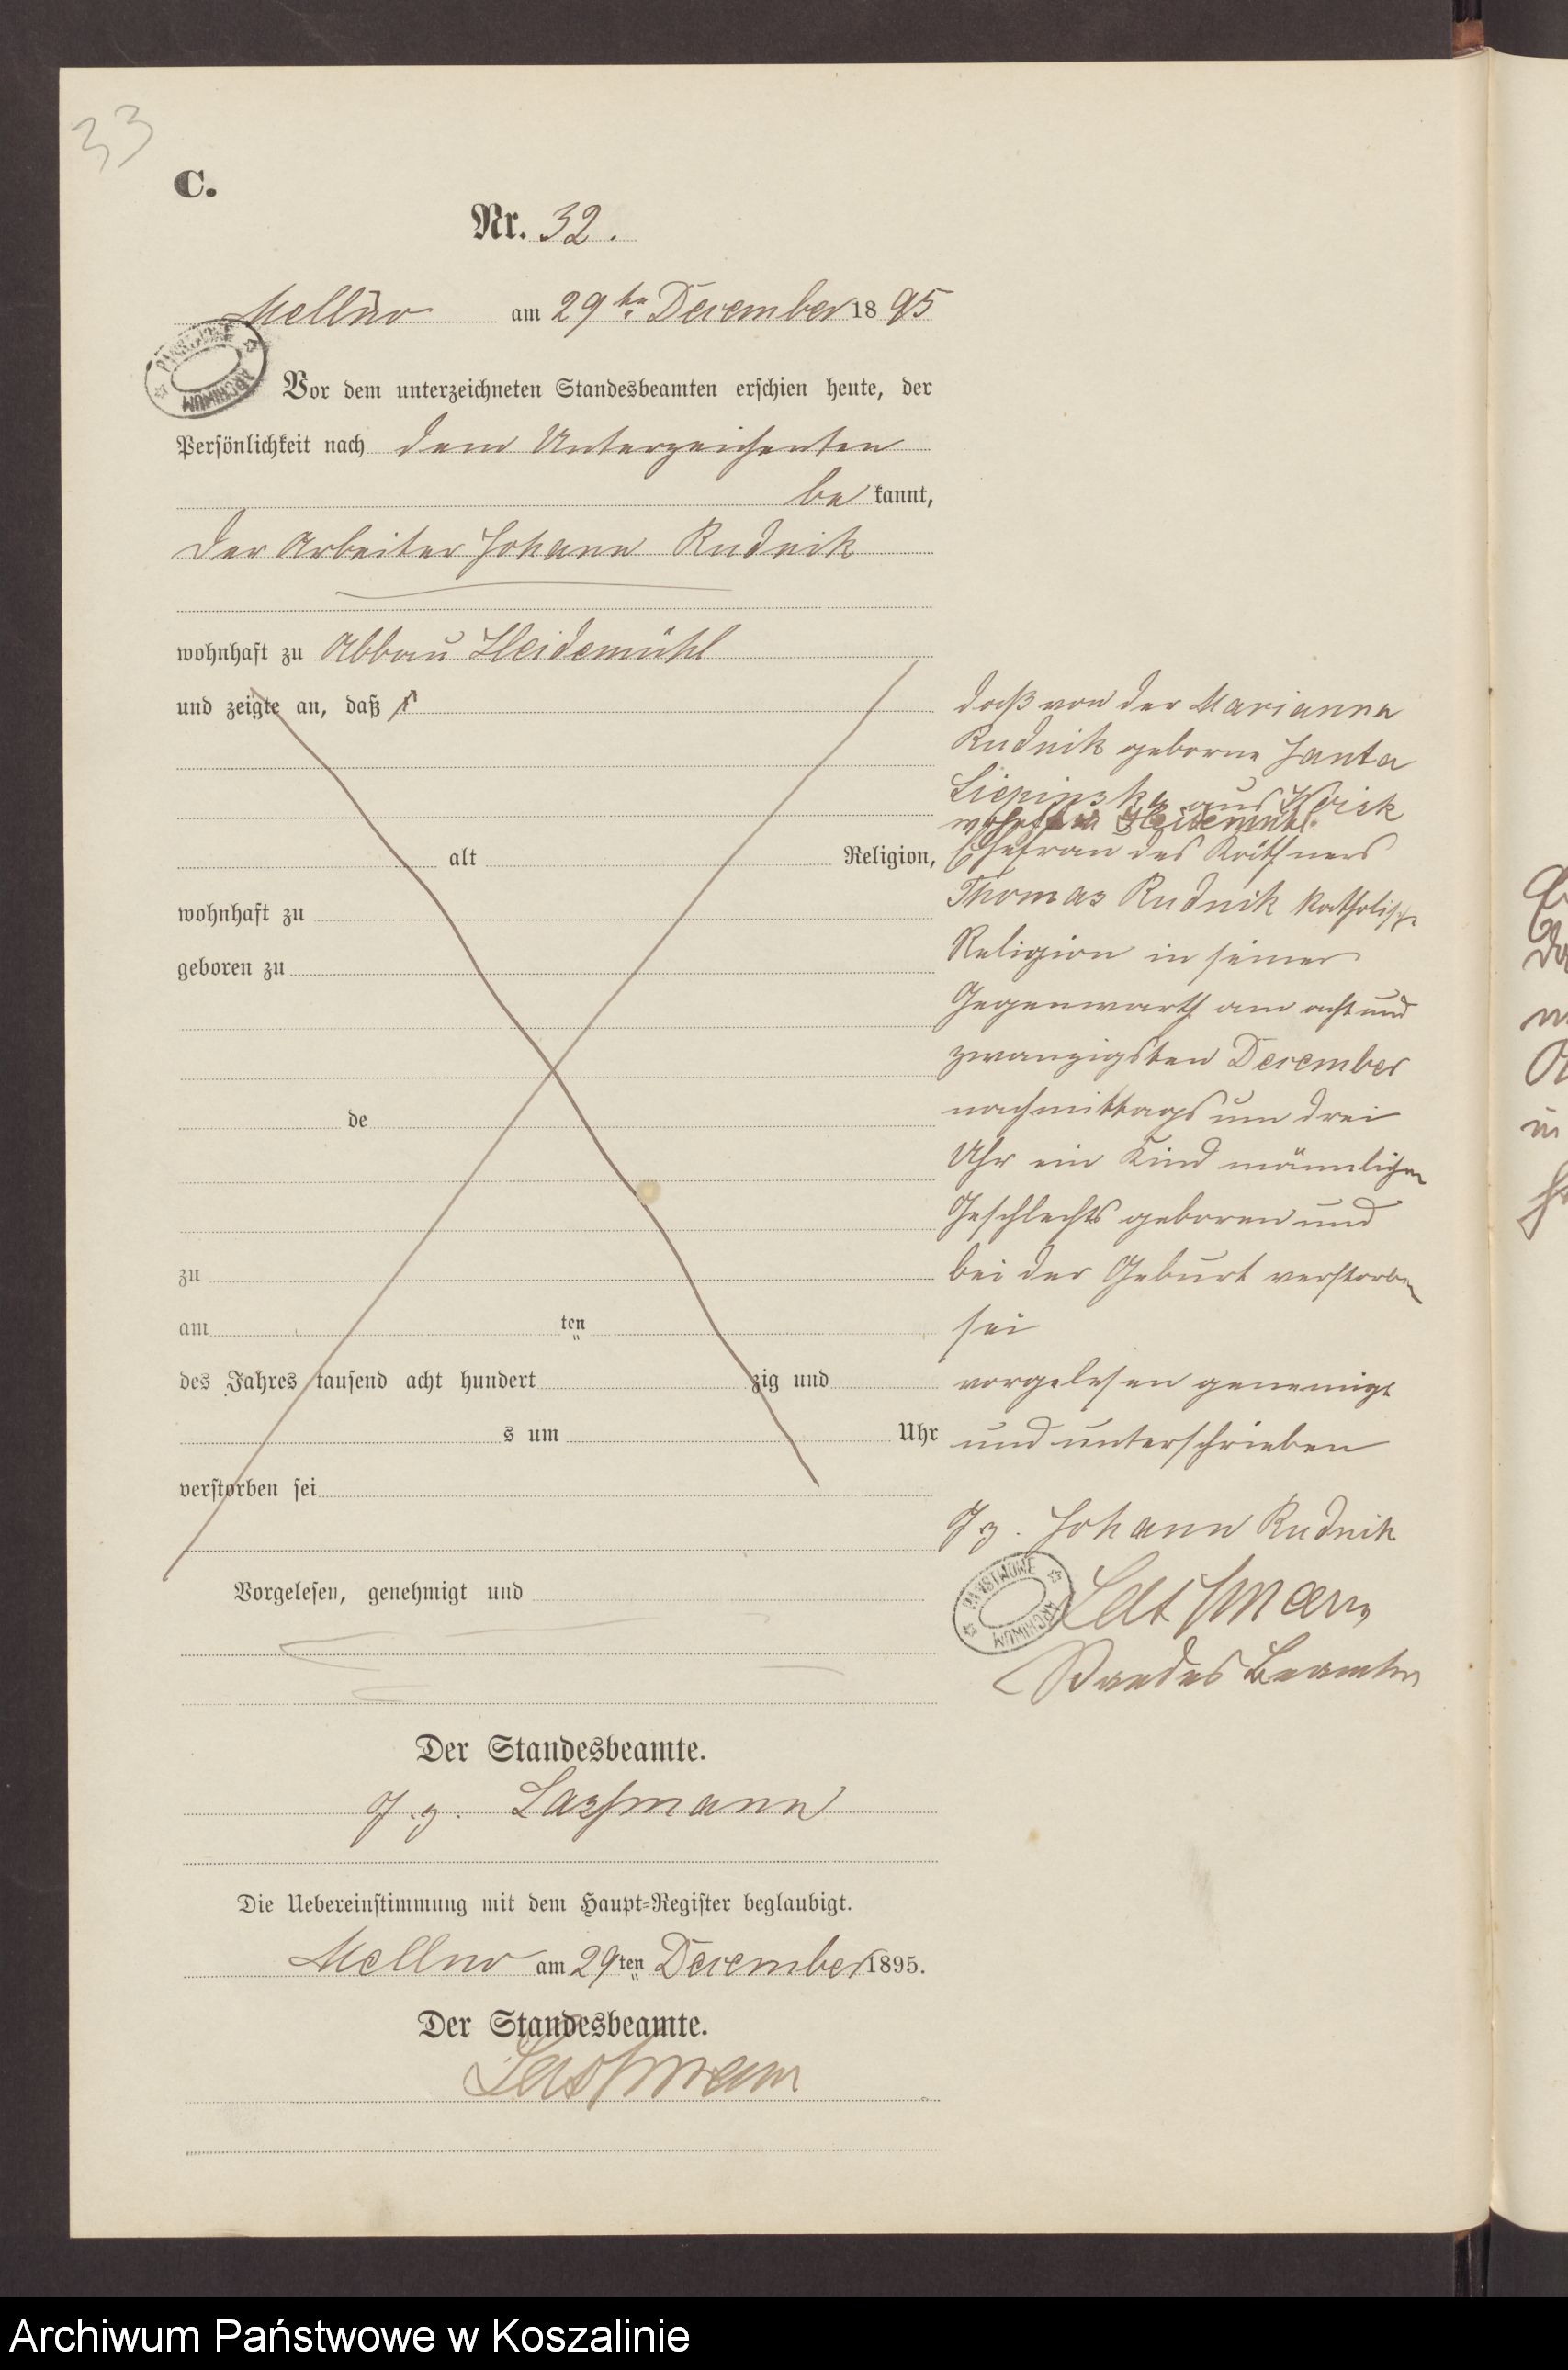 33
C.
Nr. 32.
Mellno am 29ten December 1895
Vor dem unterzeichneten Standesbeamten erschien heute, der
Persönlichkeit nach dem Unterzeichenten
be kannt,
der Arbeiter Johann Rudnik
wohnhaft zu Abbau Heidemühl
und zeigte an, daß
alt Religion,
wohnhaft zu
geboren zu
de
zu
am ten
des Jahres tausend acht hundert zig und
s um Uhr
verstorben sei
Vorgelesen, genehmigt und
daß von der Marianna
Rudnik geborne Janta
Liepinska aus
Heidemühl
Ehefrau des Käthners
Thomas Rudnik katholischer
Religion in seiner
Gegenwarth am acht und
zwanzigsten December
nachmittags um drei
Uhr ein Kind männlichen
Geschlechts geboren und
bei der Geburt verstorben
sei
vorgelesen genemigt
und unterschrieben
Gz. Johann Rudnik
PAŃSTWOWE ARCHIWUM
Lassmann
Standes Beamter
Der Standesbeamte.
G.z. Lassmann
Die Uebereinstimmung mit dem Haupt-Register beglaubigt.
Mellno am 29ten December 1895.
Der Standesbeamte.
Lassmann
PAŃSTWOWE ARCHIWUM
Archiwum Państwowe w Koszalinie